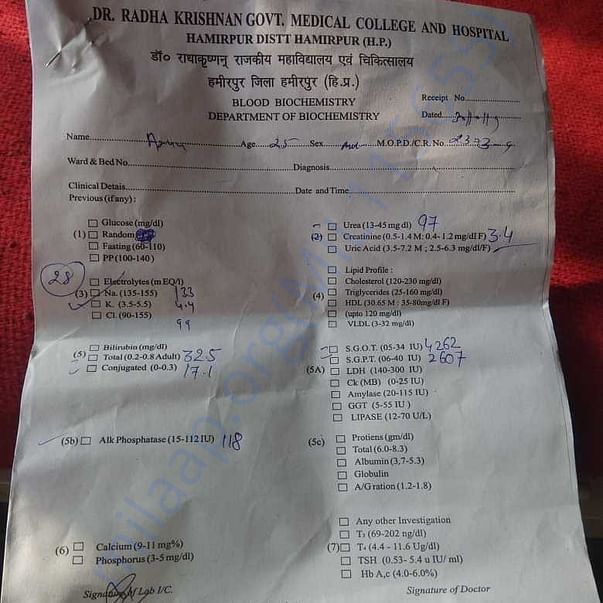 DR. RADHA KRISHNAN GOVT. MEDICAL COLLEGE AND HOSPITAL
HAMIRPUR DISTT HAMIRPUR (H.P.)
डॉ० राधाकृष्णन् राजकीय महाविद्यालय एवं चिकित्सालय
हमीरपुर जिला हमीरपुर (हि.प्र.)
BLOOD BIOCHEMISTRY
DEPARTMENT OF BIOCHEMISTRY
Receipt No
Dated
Name Age 25 Sex M.O.P.D./C.R. No.
Ward & Bed No. Diagnosis
Clinical Detais Date and Time
Previous (if any) :
(1) Glucose (mg/dl)
Random
Fasting (60-110)
PP (100-140)
(2) Urea (13-45 mg dl) 97
Creatinine (0.5-1.4 M: 0.4-1.2 mg/dl F) 3.4
Uric Acid (3.5-7.2 M ; 2.5-6.3 mg/dl/F)
28
(3) Electrolytes (m EQ/l)
Na. (135-155) 133
K. (3.5-5.5) 4.4
Cl. (90-155) 99
(4) Lipid Profile :
Cholesterol (120-230 mg/dl)
Triglycerides (25-160 mg/dl)
HDL (30.65 M : 35-80mg/dl F)
(upto 120 mg/dl)
VLDL (3-32 mg/dl)
(5) Bilirubin (mg/dl)
Total (0.2-0.8 Adult) 32.5
Conjugated (0-0.3) 17.1
(5A) S.G.O.T. (05-34 IU) 4262
S.G.P.T. (06-40 IU) 2607
LDH (140-300 IU)
Ck (MB) (0-25 IU)
Amylase (20-115 IU)
GGT (5-55 IU )
LIPASE (12-70 U/L)
(5b) Alk Phosphatase (15-112 IU) 118
(5c) Protiens (gm/dl)
Total (6.0-8.3)
Albumin (3.7-5.3)
Globulin
A/G ration (1.2-1.8)
(6) Calcium (9-11 mg%)
Phosphorus (3-5 mg/dl)
(7) Any other Investigation
T3 (69-202 ng/dl)
T4 (4.4 - 11.6 Ug/dl)
TSH (0.53- 5.4 u IU/ ml)
Hb A,c (4.0-6.0%)
Signature of Lab I/C.
Signature of Doctor